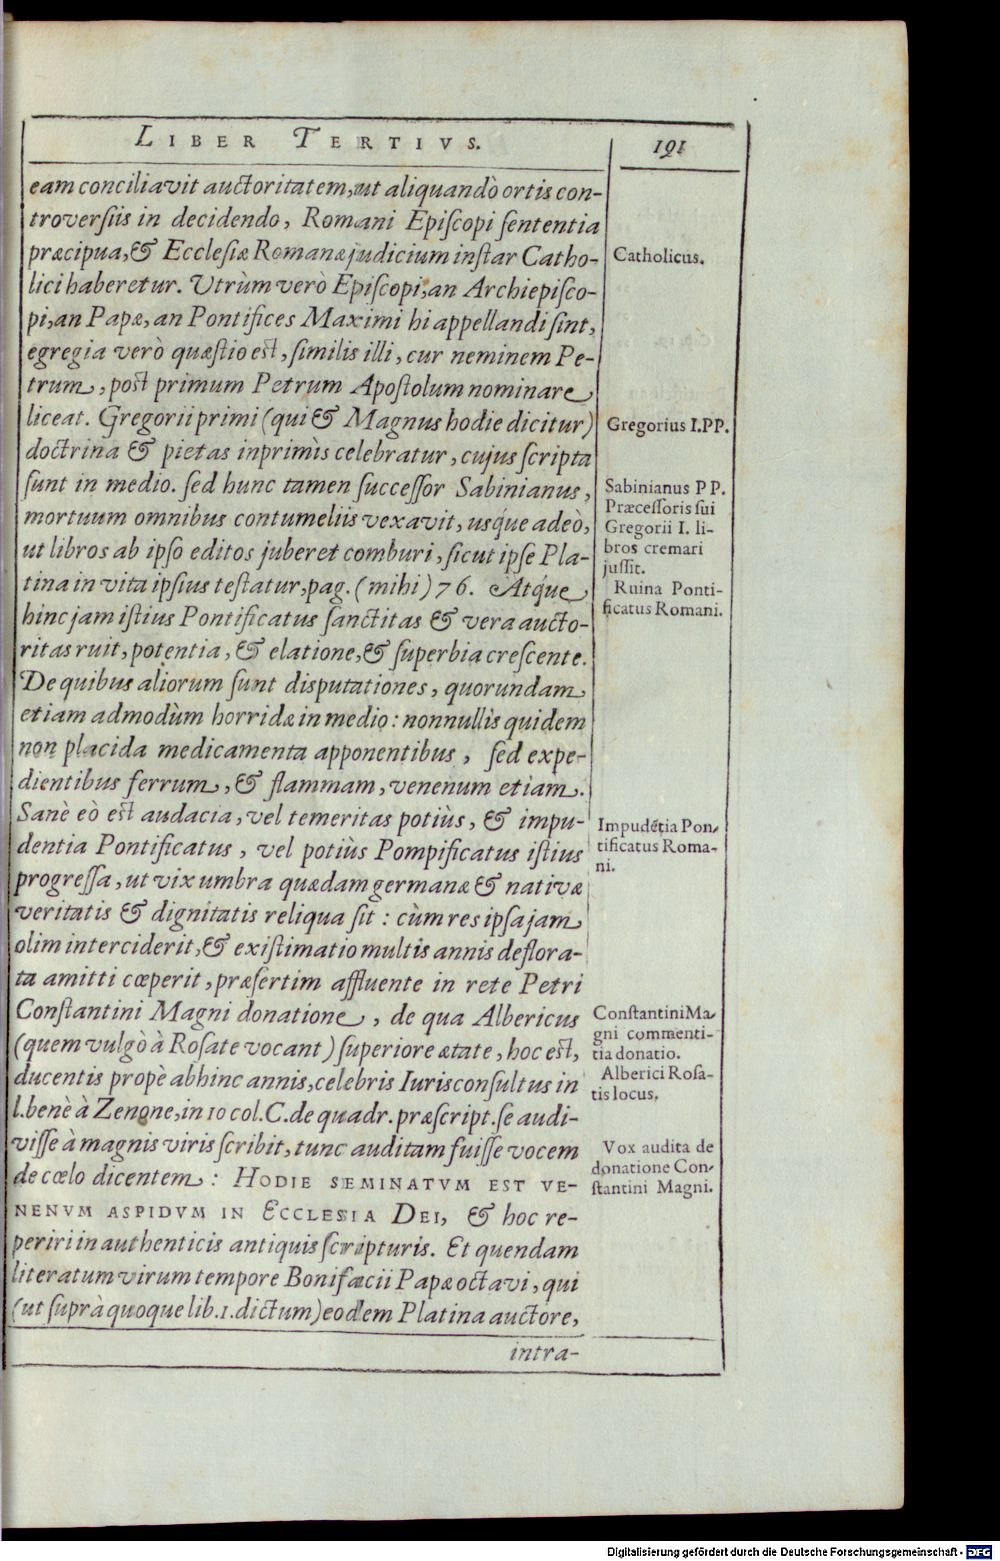 LIBER TERTIVS.
191
eam conciliavit auctoritatem, ut aliquandò ortis con-
troversiis in decidendo, Romani Episcopi sententia
præcipua, & Ecclesiæ Romanæ judicium instar Catho-
lici haberetur. Utrùm verò Episcopi, an Archiepisco-
pi, an Papæ, an Pontifices Maximi hi appellandi sint,
egregia verò quæstio est, similis illi, cur neminem Pe-
trum, post primum Petrum Apostolum nominare
liceat. Gregorii primi (qui & Magnus hodie dicitur)
doctrina & pietas inprimìs celebratur, cujus scripta
sunt in medio. sed hunc tamen successor Sabinianus,
mortuum omnibus contumeliis vexavit, usq́ue adeò,
ut libros ab ipso editos juberet comburi, sicut ipse Pla-
tina in vita ipsius testatur, pag. (mihi) 76. Atq́ue
hinc jam istius Pontificatus sanctitas & vera aucto-
ritas ruit, potentia, & elatione, & superbia crescente.
De quibus aliorum sunt disputationes, quorundam
etiam admodùm horridæ in medio: nonnullis quidem
non placida medicamenta apponentibus, sed expe-
dientibus ferrum, & flammam, venenum etiam.
Sanè eò est audacia, vel temeritas potiùs, & impu-
dentia Pontificatus, vel potiùs Pompificatus istius
progressa, ut vix umbra quædam germanæ & nativæ
veritatis & dignitatis reliqua sit: cùm res ipsa jam
olim interciderit, & existimatio multis annis deflora-
ta amitti cœperit, præsertim affluente in rete Petri
Constantini Magni donatione, de qua Albericus
(quem vulgò à Rosate vocant) superiore ætate, hoc est,
ducentis propè abhinc annis, celebris Iurisconsultus in
l. benè à Zenone, in 10 col. C. de quadr. præscript. se audi-
visse à magnis viris scribit, tunc auditam fuisse vocem
de cœlo dicentem: HODIE SEMINATVM EST VE-
NENVM ASPIDVM IN ECCLESIA DEI, & hoc re-
periri in authenticis antiquis scripturis. Et quendam
literatum virum tempore Bonifacii Papæ octavi, qui
(ut suprà quoque lib. 1. dictum) eodem Platina auctore,
intra-
Catholicus.
Gregorius I. PP.
Sabinianus PP.
Præcessoris sui
Gregorii I. li-
bros cremari
jussit.
Ruina Ponti-
ficatus Romani.
Impudētia Pon-
tificatus Roma-
ni.
Constantini Ma-
gni commenti-
tia donatio.
Alberici Rosa-
tis locus.
Vox audita de
donatione Con-
stantini Magni.
Digitalisierung gefördert durch die Deutsche Forschungsgemeinschaft - DFG